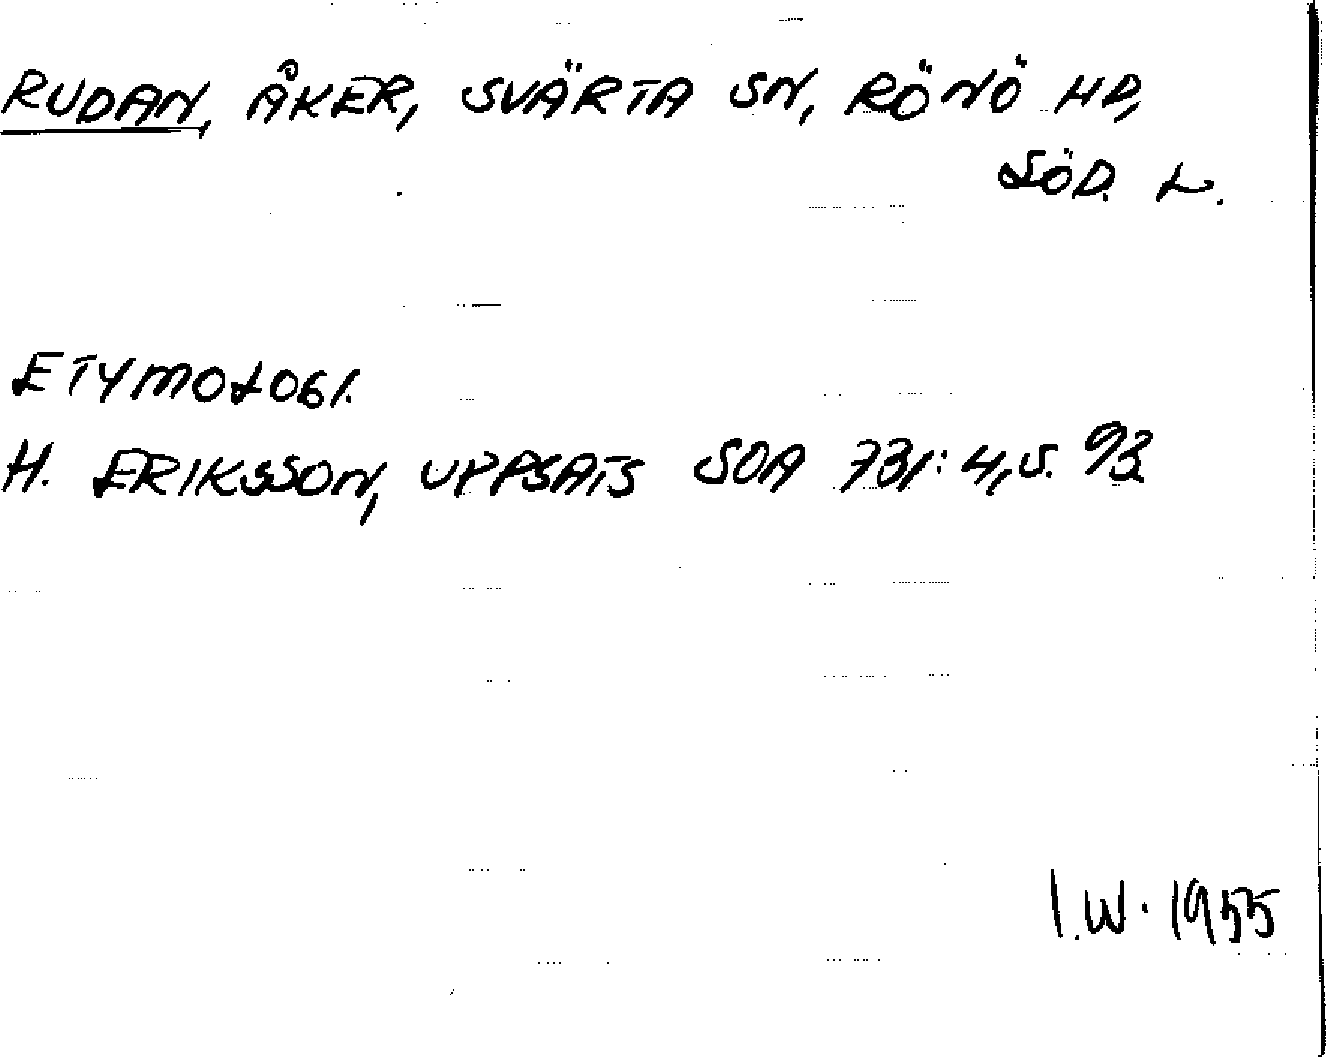 RUDAN, ÅKER, SVÄRTA SN, RÖNÖ HD,
SÖD. L.
ETYMOLOGI.
H. ERIKSSON, UPPSATS SOA 731:4, S. 93.
I.W. 1955